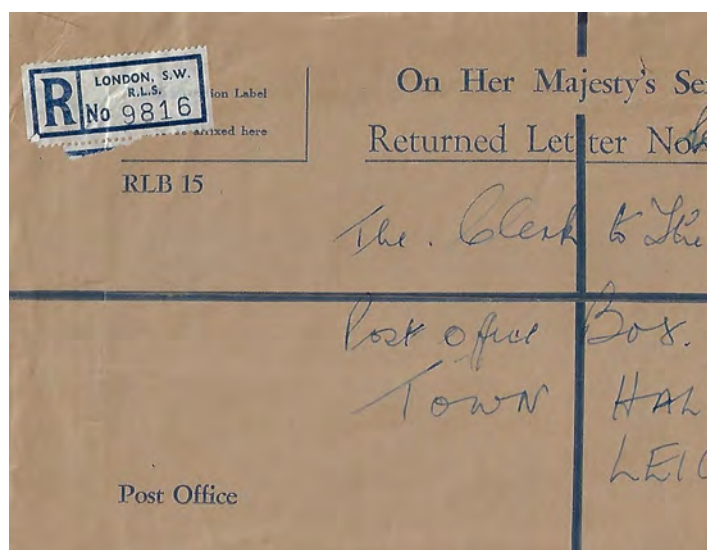 R
LONDON, S.W.
R.L.S.
No 9816
ion Label
affixed here
RLB 15
On Her Majesty's Ser
Returned Letter No
The. Clerk to The
Post Office Box.
TOWN HAL
LEIC
Post Office